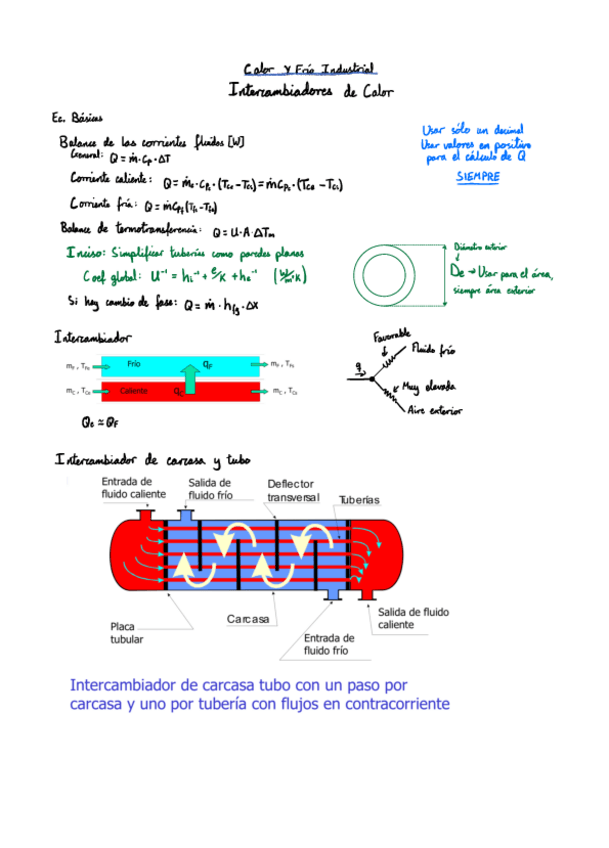 Calor y Frío Industrial
Intercambiadores de Calor
Ec. Básicas
Balance de las corrientes fluidos [W]
General: Q = ṁ·Cp·ΔT
Corriente caliente: Q = ṁc·Cpc·(Tce -Tcs) = ṁCpc·(Tco -Tci)
Corriente fría: Q = ṁCpf (Tfi -Tfo)
Balance de termotransferencia: Q = U·A·ΔTm
Inciso: Simplificar tuberías como paredes planas
Coef global: U⁻¹ = hi⁻¹ + e/K + he⁻¹ (W/m²K)
Si hay cambio de fase: Q = ṁ·hfg·ΔX
Usar sólo un decimal
Usar valores en positivo
para el cálculo de Q
SIEMPRE
Diámetro exterior
De → Usar para el área,
siempre área exterior
Intercambiador
mF , TFe
Frío
qF
mF , TFs
mC , TCe
Caliente
qC
mC , TCs
Qc ≃ QF
Favorable
Fluido frío
q
Muy elevada
Aire exterior
Intercambiador de carcasa y tubo
Entrada de
fluido caliente
Salida de
fluido frío
Deflector
transversal
Tuberías
Placa
tubular
Carcasa
Entrada de
fluido frío
Salida de fluido
caliente
Intercambiador de carcasa tubo con un paso por
carcasa y uno por tubería con flujos en contracorriente